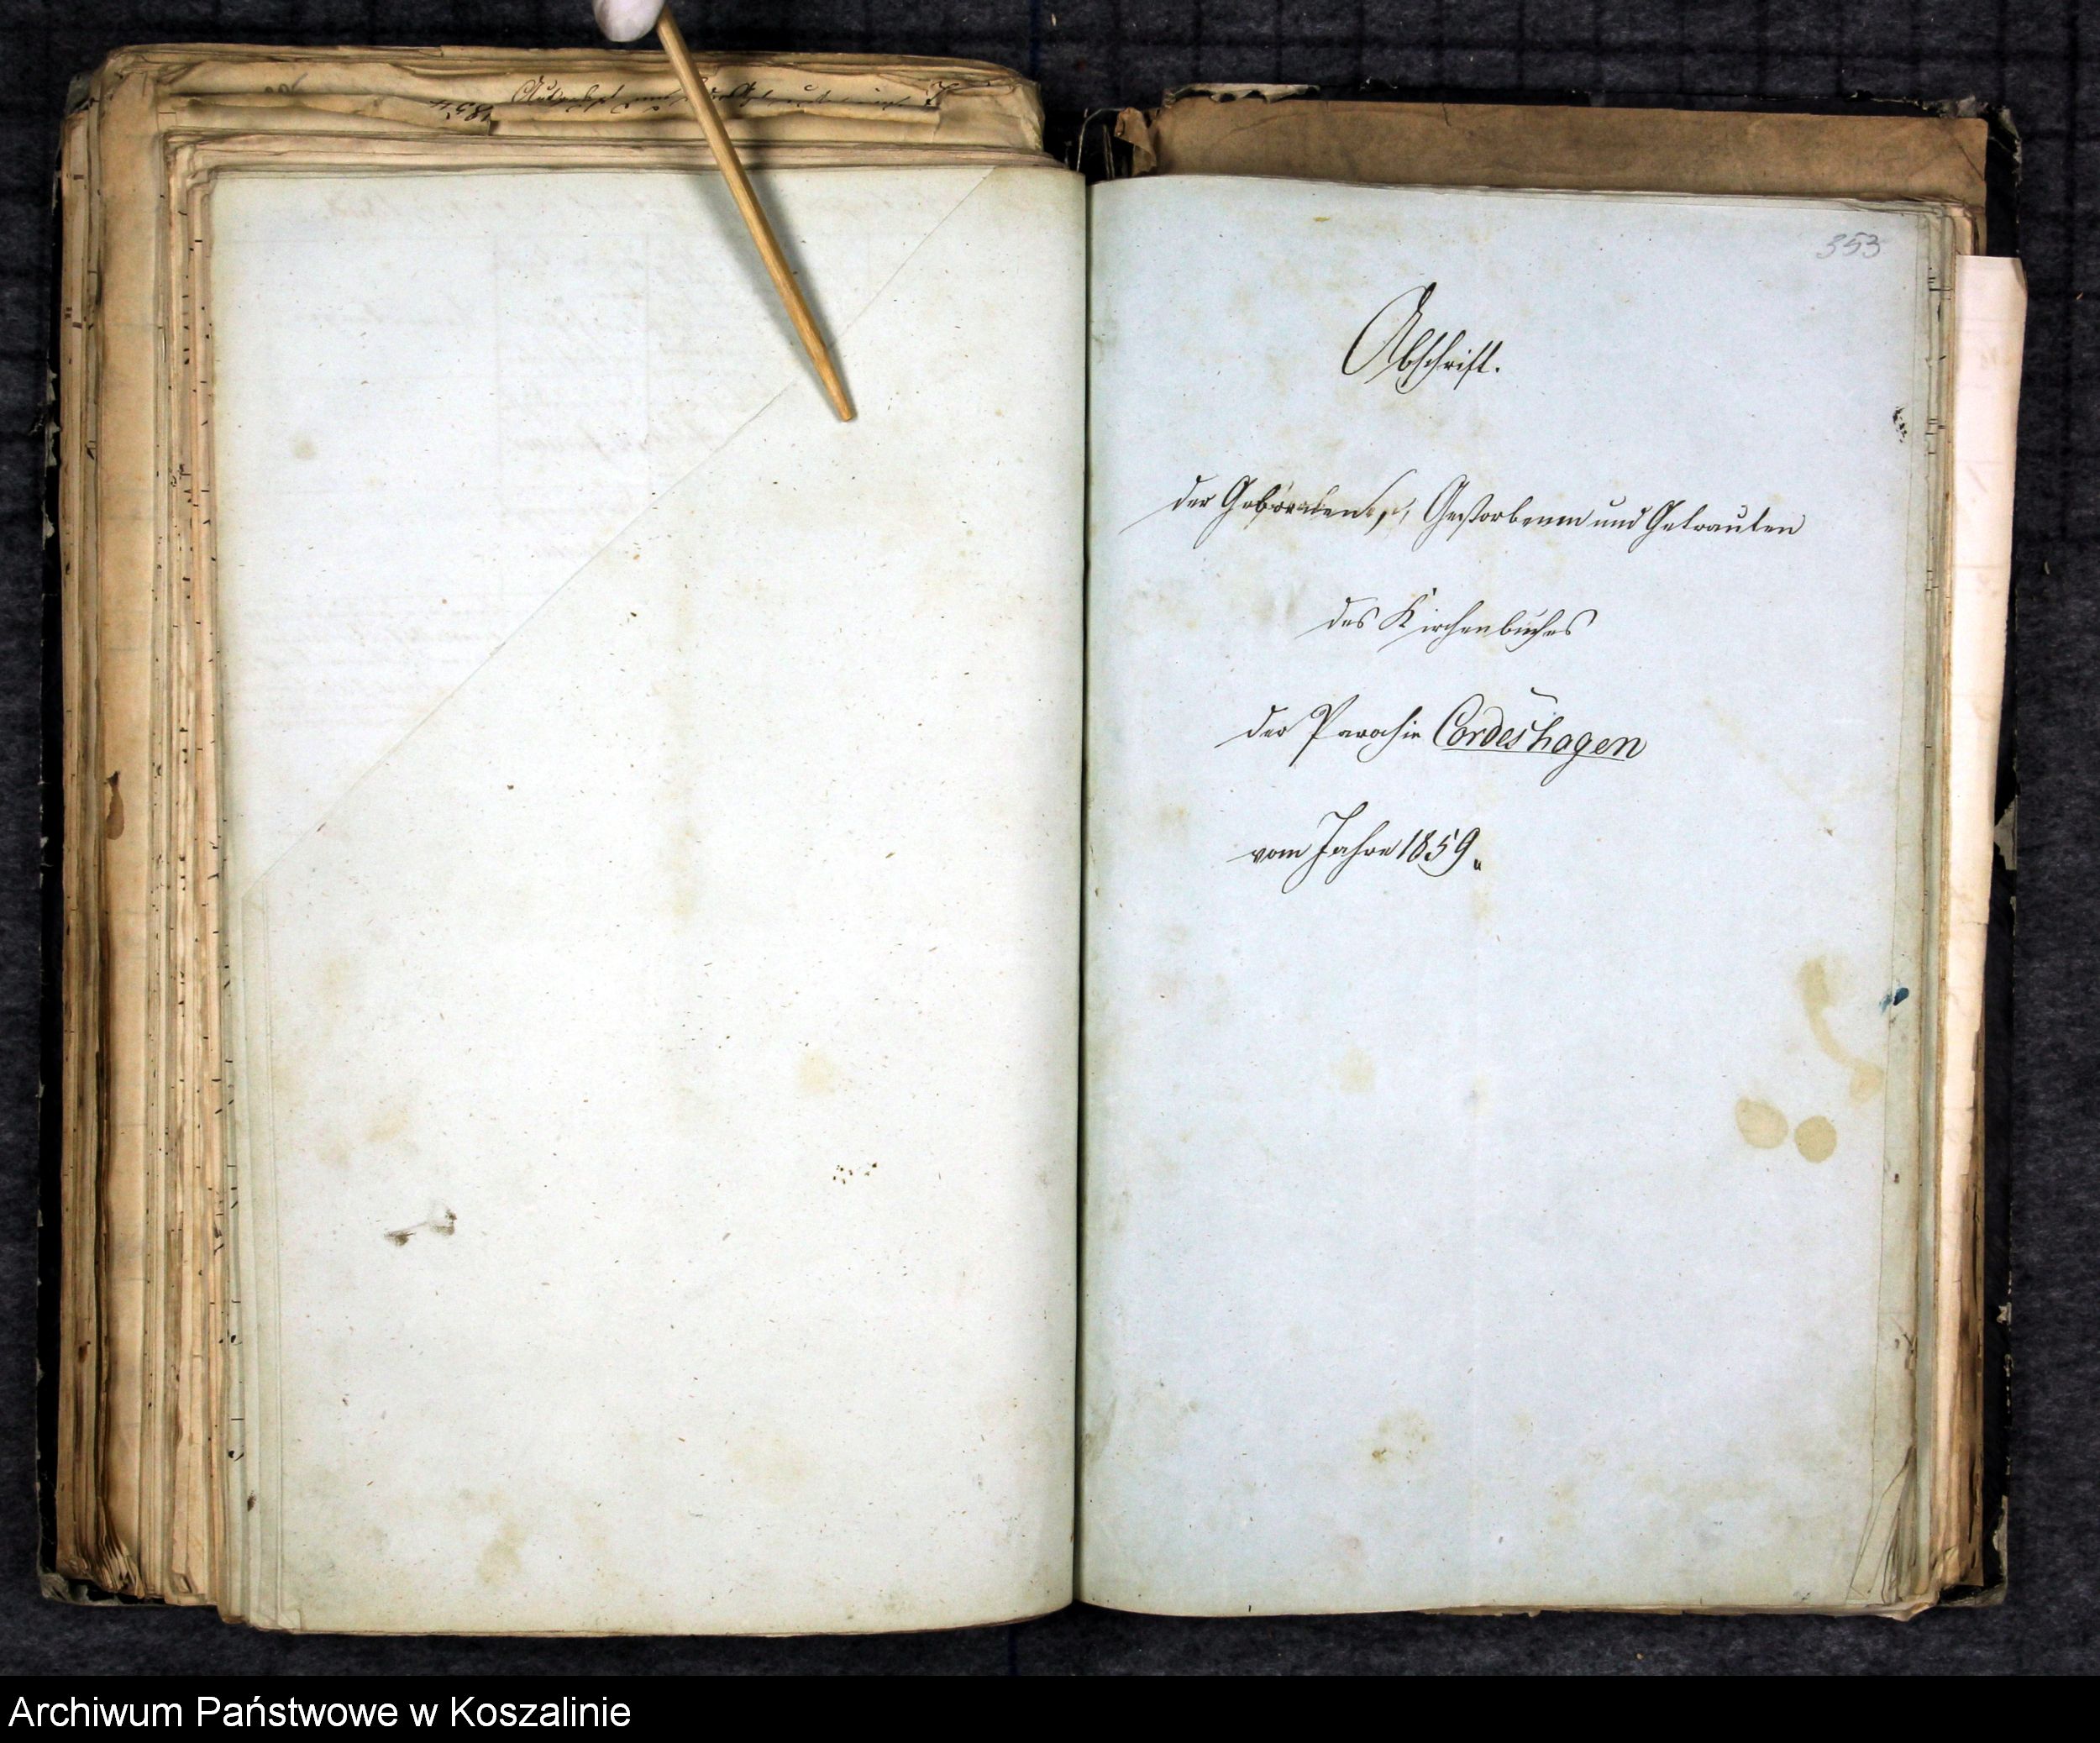 353
Abschrift.
der Geborenen, Gestorbenen und Getrauten
des Kirchenbuches
der Parochie Cordeshagen
vom Jahre 1859.
Archiwum Państwowe w Koszalinie